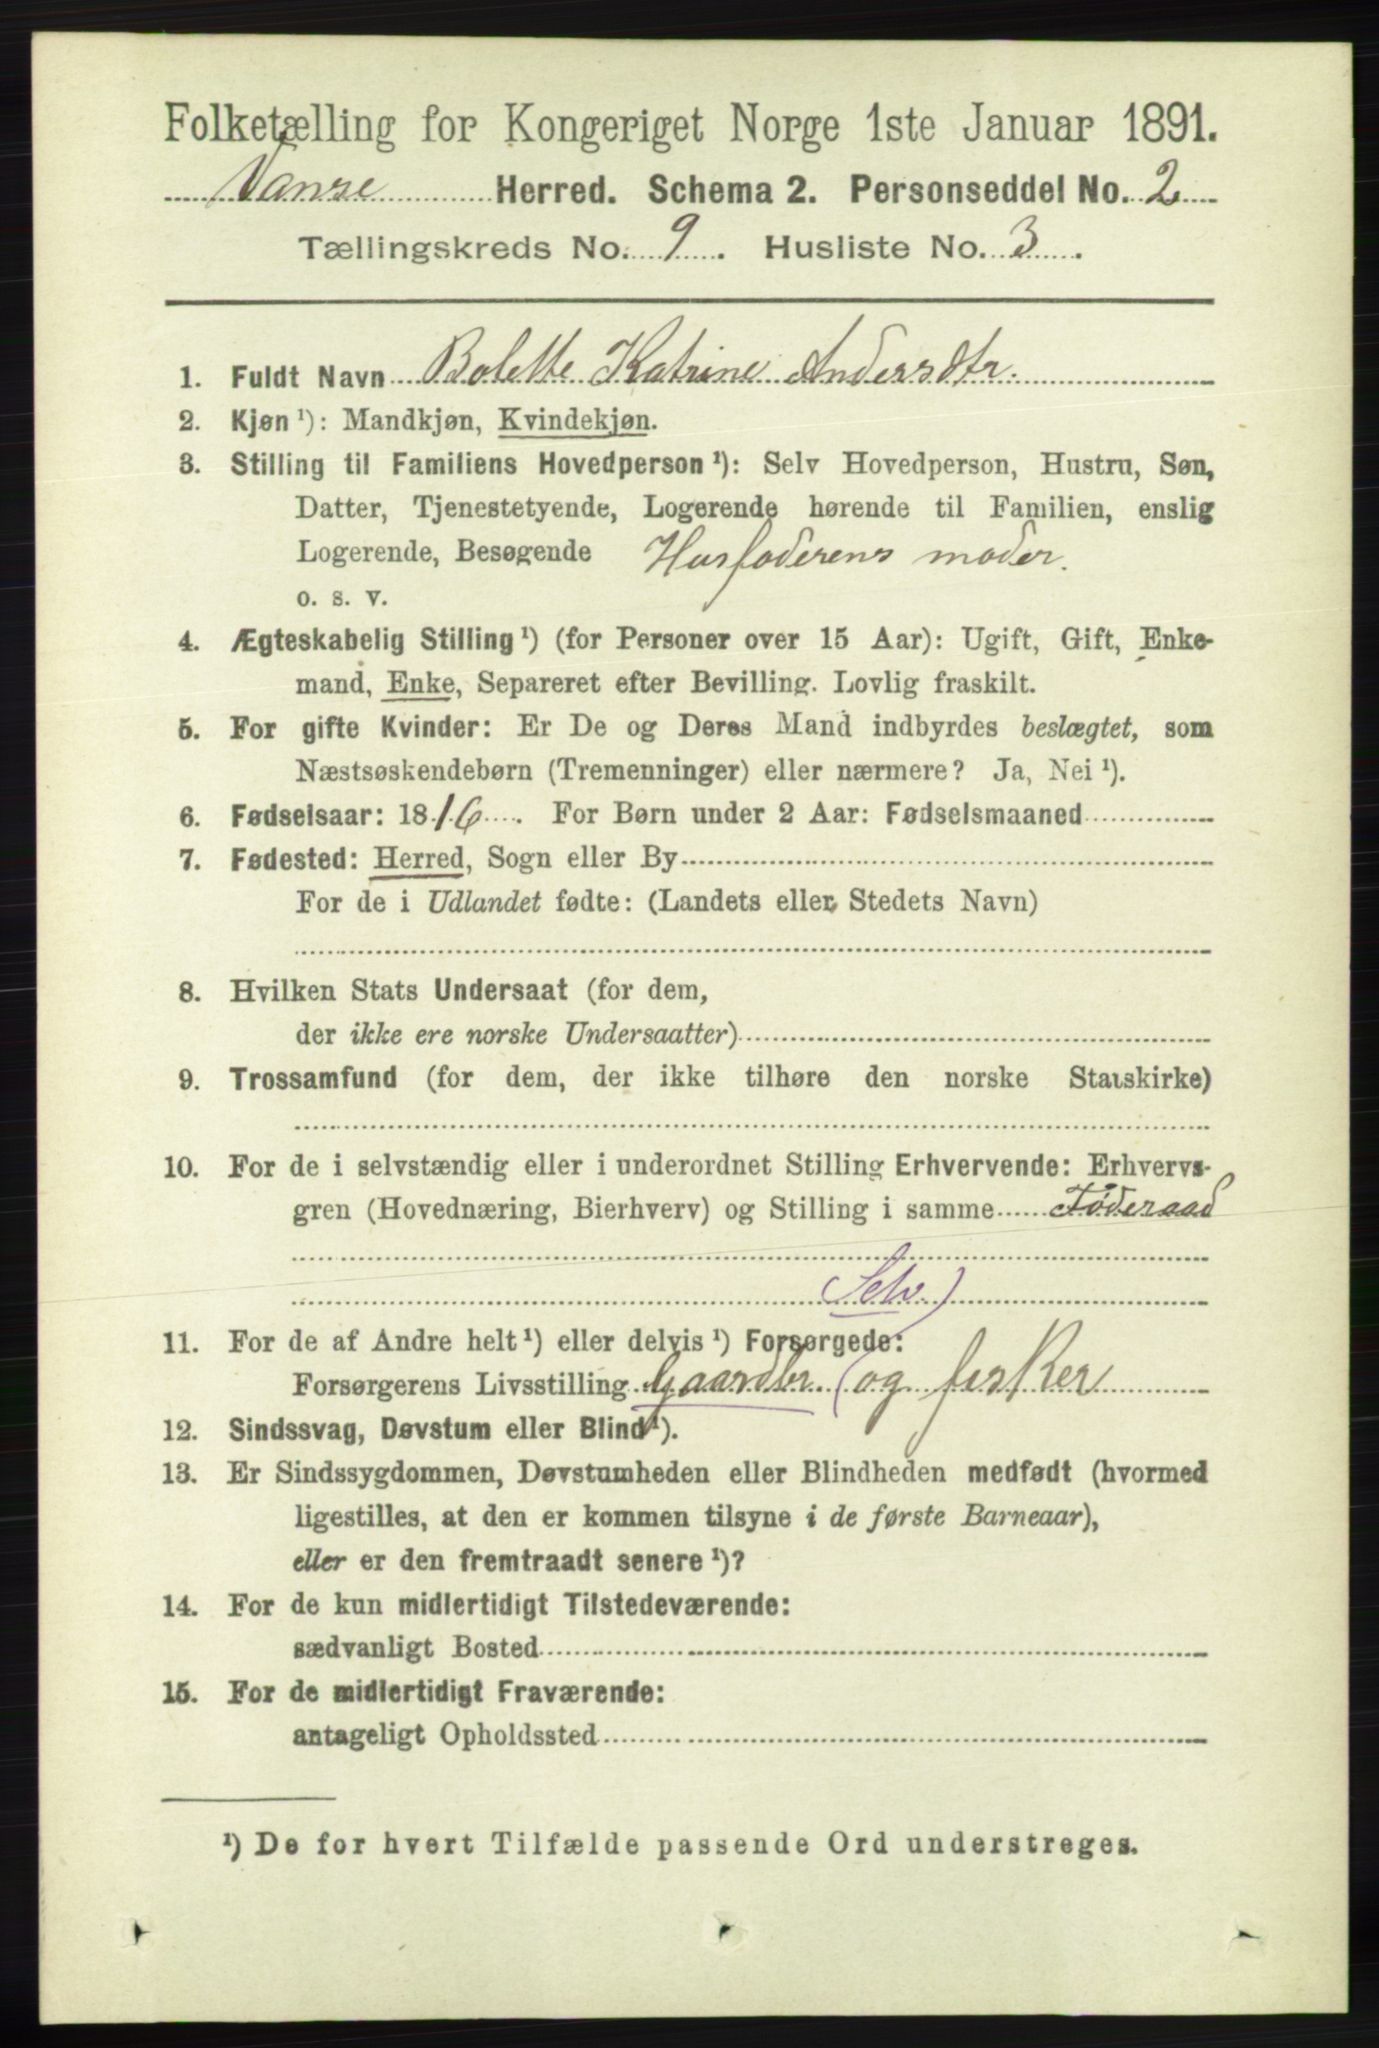 Folketælling for Kongeriget Norge 1ste Januar 1891.
Vanse Herred. Schema 2. Personseddel No. 2
Tællingskreds No. 9. Husliste No. 3.
1. Fuldt Navn Bolette Katrine Andersdtr.
2. Kjøn ¹): Mandkjøn, Kvindekjøn.
3. Stilling til Familiens Hovedperson ¹): Selv Hovedperson, Hustru, Søn,
Datter, Tjenestetyende, Logerende hørende til Familien, enslig
Logerende, Besøgende Husfaderens moder.
o. s. v.
4. Ægteskabelig Stilling ¹) (for Personer over 15 Aar): Ugift, Gift, Enke-
mand, Enke, Separeret efter Bevilling. Lovlig fraskilt.
5. For gifte Kvinder: Er De og Deres Mand indbyrdes beslægtet, som
Næstsøskendebørn (Tremenninger) eller nærmere? Ja, Nei ¹).
6. Fødselsaar: 1816. For Børn under 2 Aar: Fødselsmaaned
7. Fødested: Herred, Sogn eller By
For de i Udlandet fødte: (Landets eller Stedets Navn)
8. Hvilken Stats Undersaat (for dem,
der ikke ere norske Undersaatter)
9. Trossamfund (for dem, der ikke tilhøre den norske Statskirke)
10. For de i selvstændig eller i underordnet Stilling Erhvervende: Erhvervs-
gren (Hovednæring, Bierhverv) og Stilling i samme Føderaad
(Selv)
11. For de af Andre helt ¹) eller delvis ¹) Forsørgede:
Forsørgerens Livsstilling Gaardbr. (og fisker
12. Sindssvag, Døvstum eller Blind ¹).
13. Er Sindssygdommen, Døvstumheden eller Blindheden medfødt (hvormed
ligestilles, at den er kommen tilsyne i de første Barneaar),
eller er den fremtraadt senere ¹)?
14. For de kun midlertidigt Tilstedeværende:
sædvanligt Bosted
15. For de midlertidigt Fraværende:
antageligt Opholdssted
¹) De for hvert Tilfælde passende Ord understreges.